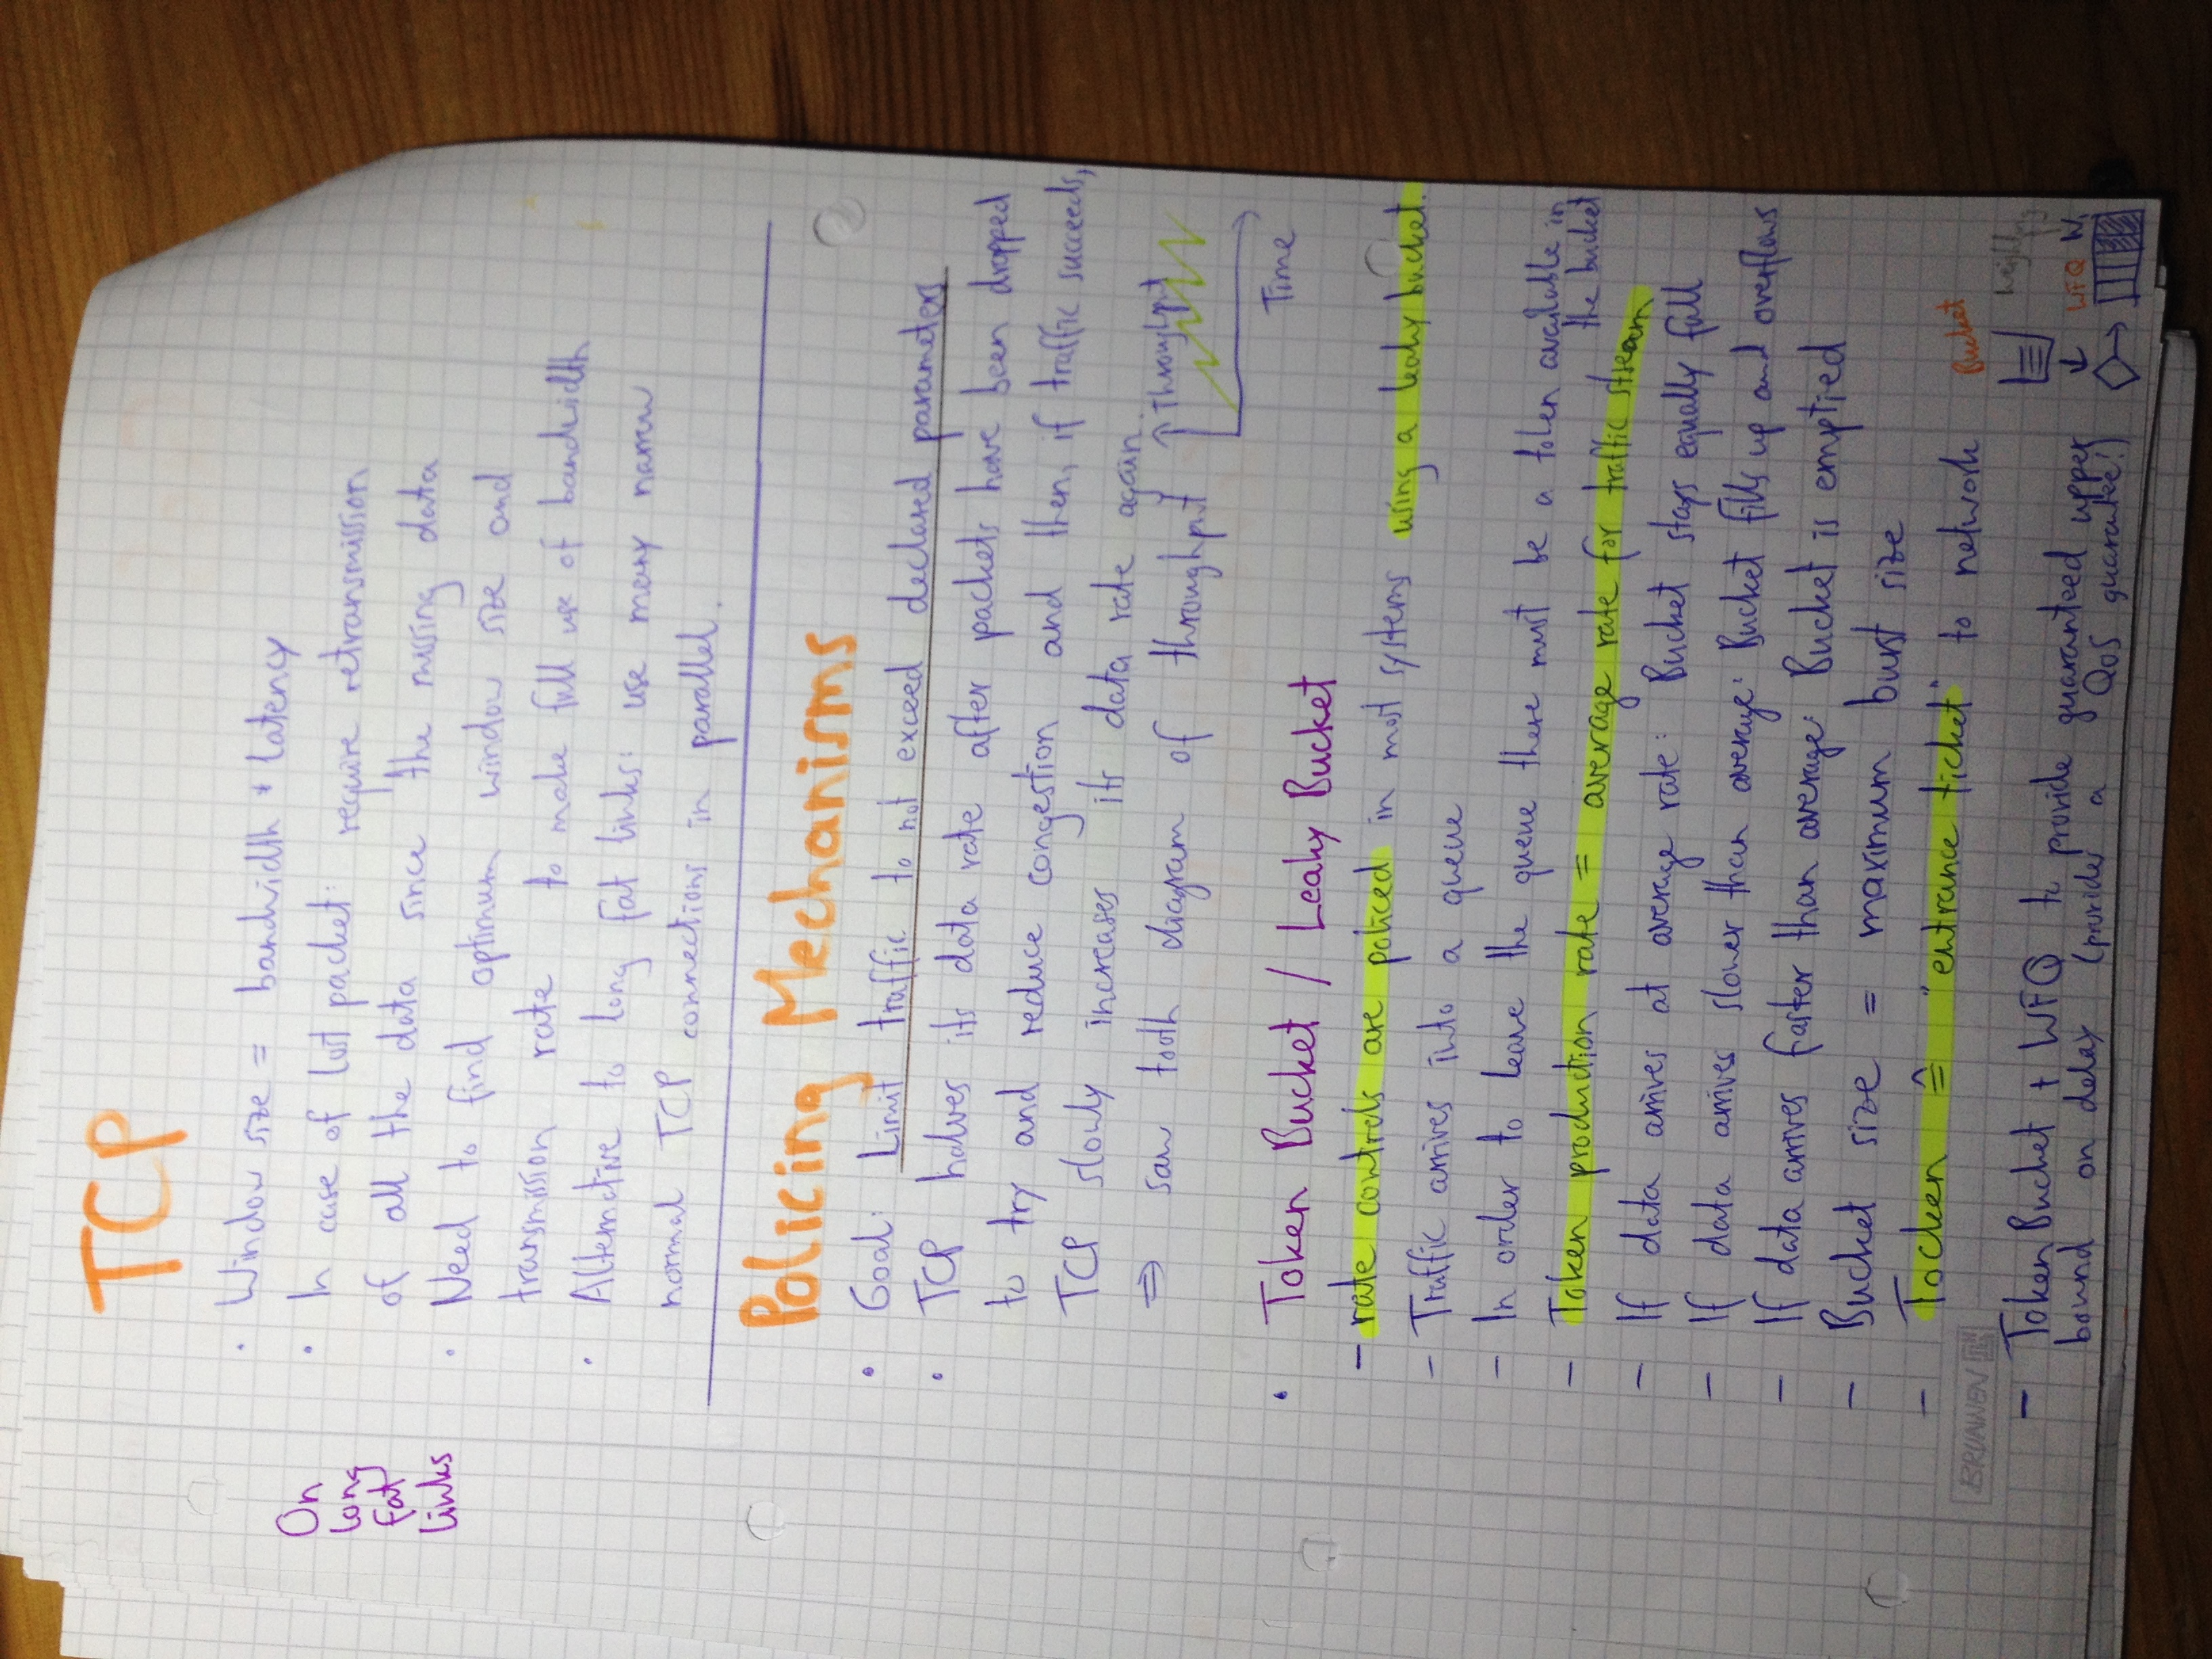 TCP
On
long
fat
links
• Window size = bandwidth * latency
• In case of lost packet: require retransmission
of all the data since the missing data
• Need to find optimum window size and
transmission rate to make full use of bandwidth
• Alternative to long fat links: use many narrow
normal TCP connections in parallel.
Policing Mechanisms
• Goal: Limit traffic to not exceed declared parameters
• TCP halves its data rate after packets have been dropped
to try and reduce congestion and then, if traffic succeeds,
TCP slowly increases its data rate again
⇒ saw tooth diagram of throughput
Throughput
Time
• Token Bucket / Leaky Bucket
– rate controls are policed in most systems using a leaky bucket.
– Traffic arrives into a queue
– In order to leave the queue there must be a token available in
the bucket
– Token production rate = average rate for traffic stream
– If data arrives at average rate: Bucket stays equally full
– If data arrives slower than average: Bucket fills up and overflows
– If data arrives faster than average: Bucket is emptied
– Bucket size = maximum burst size
– Tocken ≙ "entrance ticket" to network
– Token Bucket + WFQ to provide guaranteed upper
bound on delay (provides a QoS guarantee!)
Bucket
WFQ
BRUNNEN